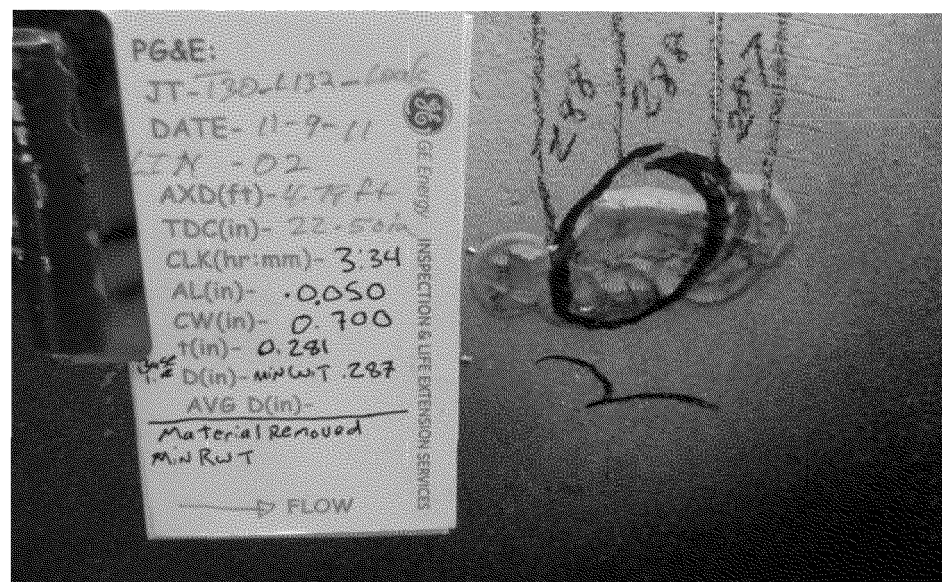 PG&E:
JT- T30-L132-
DATE- 11-9-11
-02
AXD(ft)- 4.79 ft
TDC(in)- 22.50in
CLK(hr:mm)- 3:34
AL(in)- .0.050
CW(in)- 0.700
t(in)- 0.281
D(in)- MIN W.T .287
AVG D(in)-
Material Removed
MIN RWT
FLOW
GE Energy INSPECTION & LIFE EXTENSION SERVICES
288
288
287
2